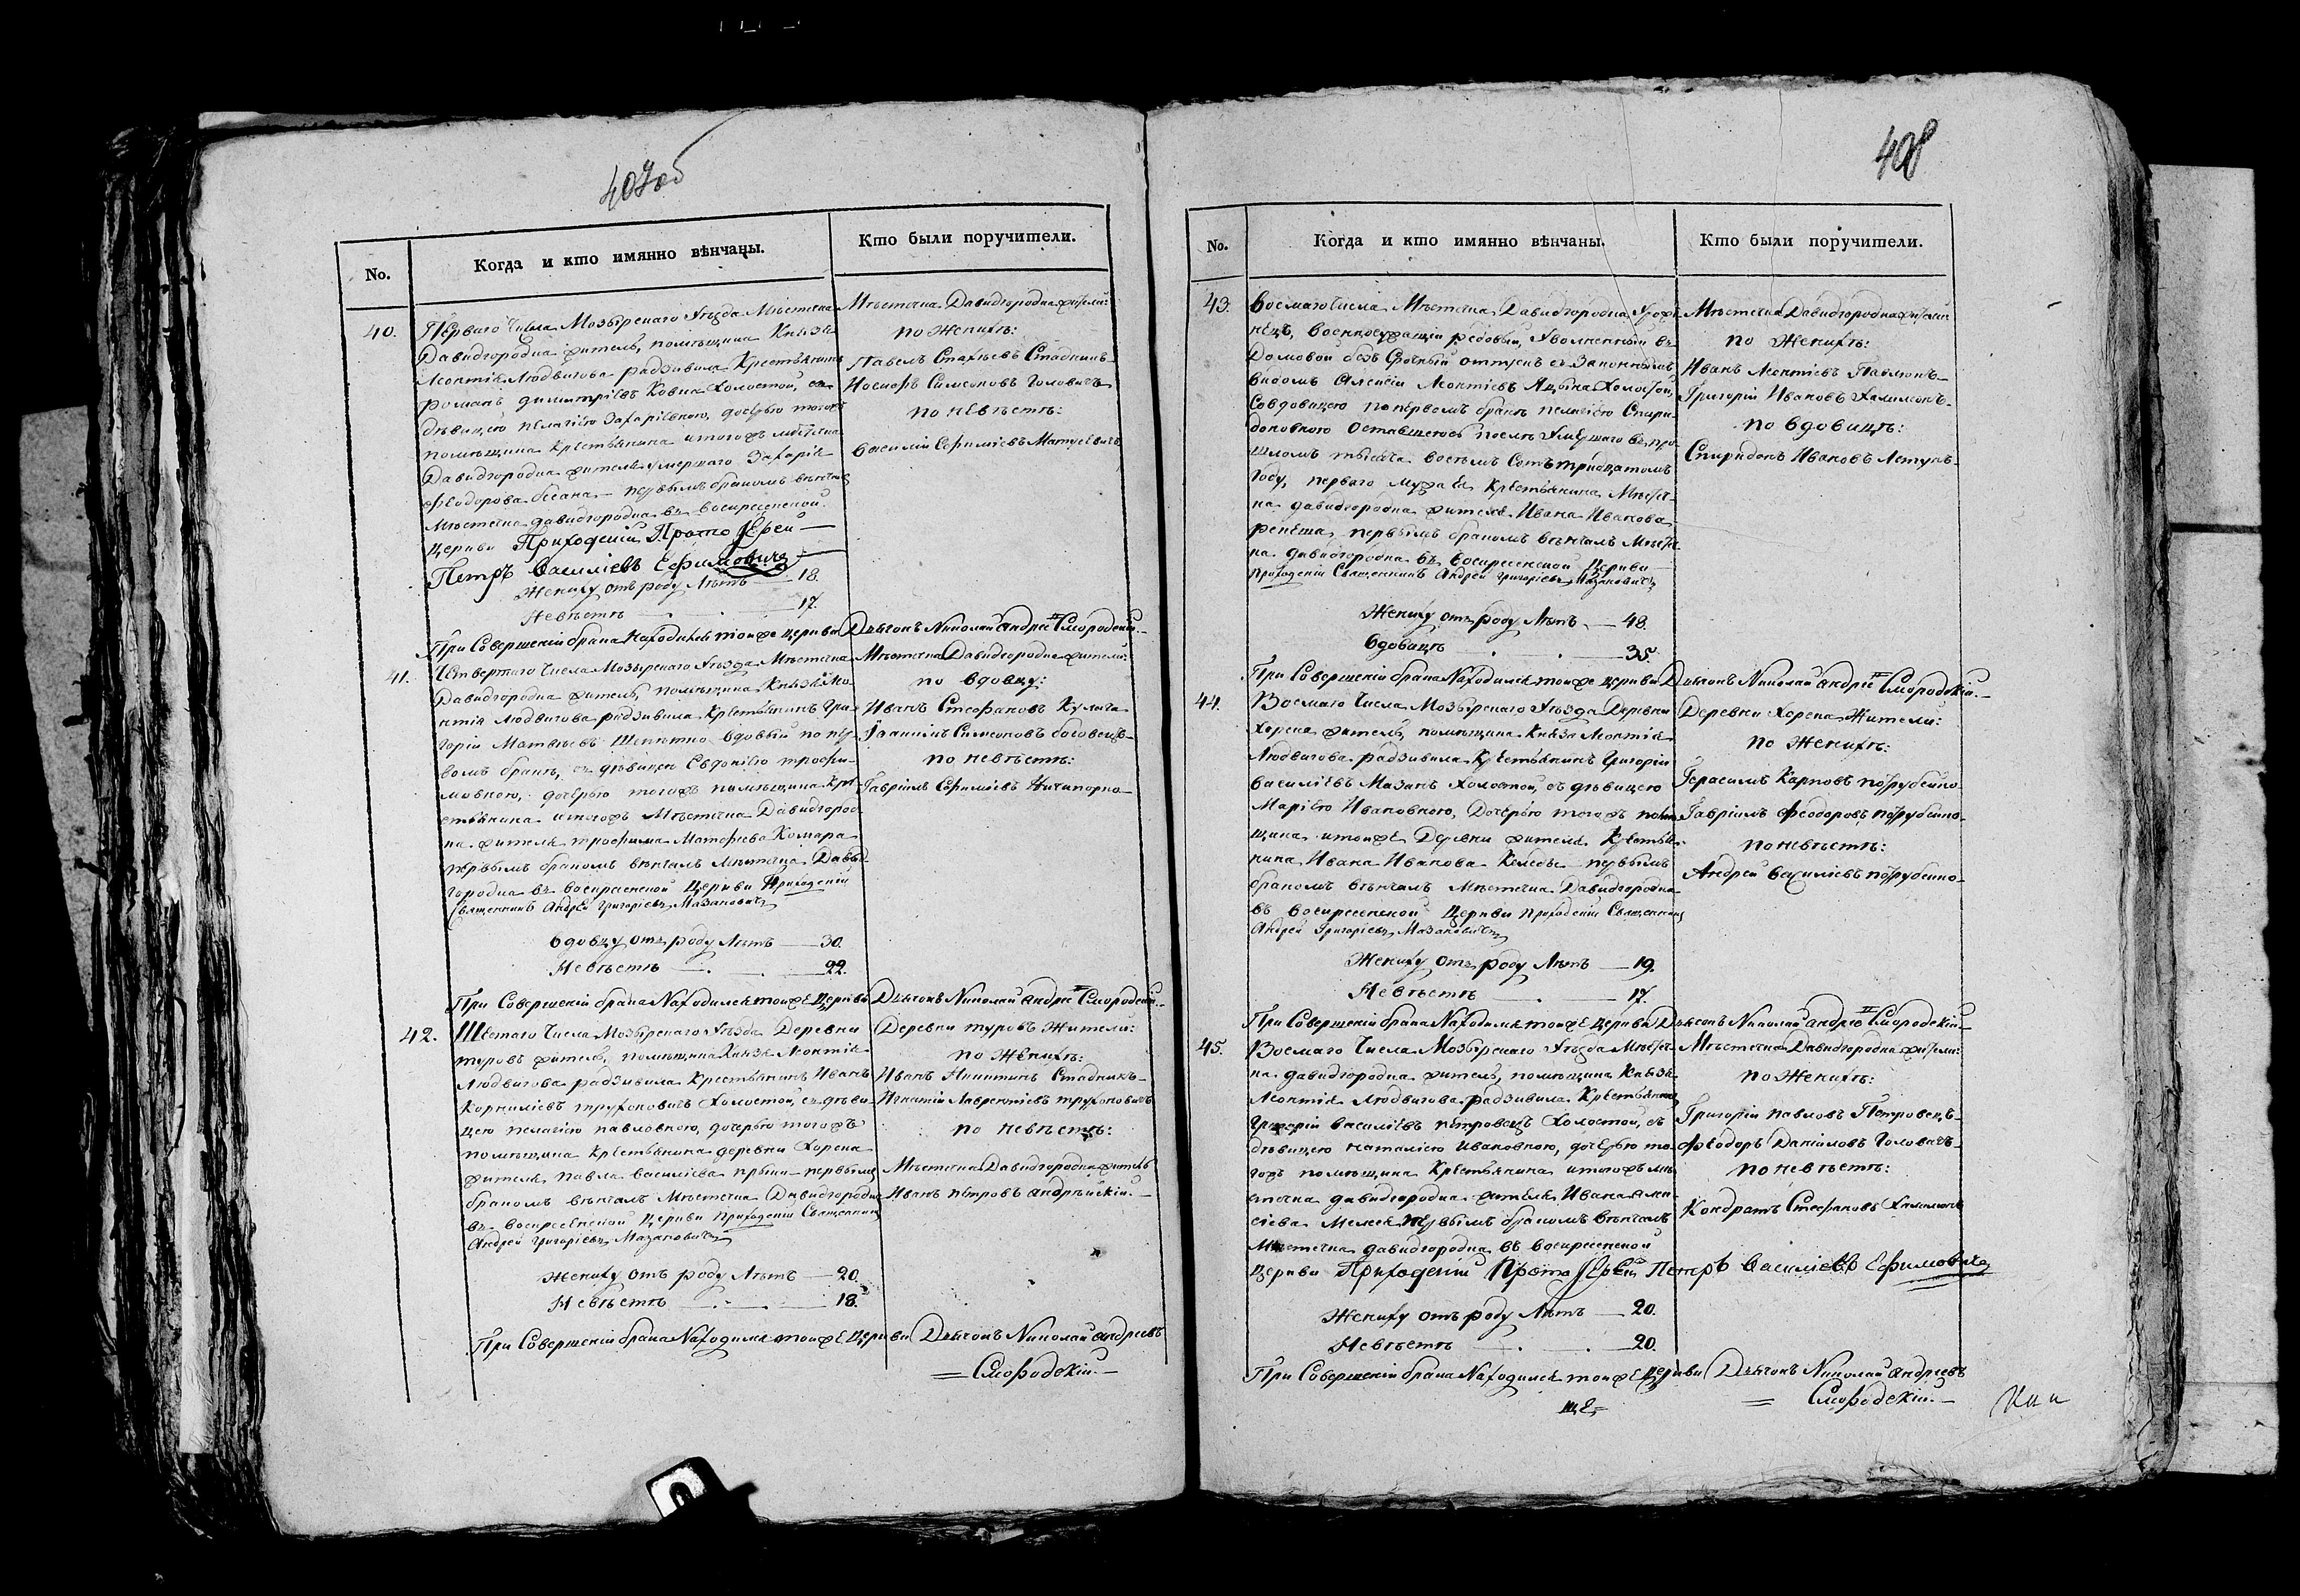 407об
No.
Когда и кто имянно вѣнчаны.
Кто были поручители.
40.
Перваго Числа Мозырскаго Уѣзда Мѣстечка
Давидгородка житель, помѣщика Князя
Леонтія Людвигова радзивила Крестьянинъ
романъ димитріевъ Ковна Холостой, съ
дѣвицею пелагіею Захаріевною, дочерью тогожъ
помѣщика Крестьянина и тогожъ мѣстечка
Давидгородка жителя умершаго Захаріи
Феодорова – первымъ бракомъ вѣнчалъ
Мѣстечка давидгородка въ воскресенской
Церкви Приходскій Протоіерей
Петръ Василіевъ Ефимовичъ
Жениху отъ роду Лѣтъ — 18.
Невѣстѣ — 17.
Мѣстечка Давидгородка жители:
по Женихѣ:
Павелъ Стадникъ
Иосифъ Симеоновъ Головачъ
по невѣстѣ:
Василій Ефиміевъ Матусевичъ
При Совершеніи брака Находился тойже церкви Дьячокъ Николай андріевъ Смородскій.
41.
Четвертаго Числа Мозырскаго Уѣзда Мѣстечка
Давидгородка житель, помѣщика Князя Лео-
нтія Людвигова радзивила Крестьянинъ Гри-
горій Матвѣевъ вдовый по пер-
вомъ бракѣ, съ дѣвицею Евдокіею трофи-
мовною, дочерью тогожъ помѣщика Кре-
стьянина и тогожъ Мѣстечка Давидгород-
ка жителя трофима Матфеева Комара
первымъ бракомъ вѣнчалъ мѣстечка Давид-
городка въ воскресенской Церкви Приходскій
Священникъ Андрей Григоріевъ Мазановичъ
Вдовцу отъ роду Лѣтъ — 30.
Невѣстѣ — 22.
Мѣстечка Давидгородка жители:
по вдовцу:
Иванъ Стефановъ Кулага
Іоакимъ Симеоновъ
по невѣстѣ:
Гавріилъ Ефиміевъ Ничипорко
При Совершеніи брака Находился тойже Церкви Дьячокъ Николай андріевъ Смородскій.
42.
Шестаго Числа Мозырскаго Уѣзда Деревни
туровъ житель, помѣщика Князя Леонтія
Людвигова радзивила Крестьянинъ Иванъ
Корниліевъ трухоновичъ Холостой, съ дѣви-
цею пелагіею павловною, дочерью тогожъ
помѣщика Крестьянина деревни Хорска
жителя павла василіева первымъ
бракомъ вѣнчалъ Мѣстечка Давидгородка
въ воскресенской Церкви Приходскій Священникъ
Андрей Григоріевъ Мазановичъ
Жениху отъ роду Лѣтъ — 20.
Невѣстѣ — 18.
Деревни туровъ Жители:
по Женихѣ:
Иванъ Никитинъ Стадникъ
Игнатій Лаврентіевъ трухоновичъ
по невѣстѣ:
Мѣстечка Давидгородка житель
Иванъ петровъ андрѣйскій.
При Совершеніи брака Находился тойже Церкви Дьячокъ Николай андріевъ
Смородскій.
408
No.
Когда и кто имянно вѣнчаны.
Кто были поручители.
43.
Восмаго Числа Мѣстечка Давидгородка
военнослужащій рядовый, Уволненный въ
Домовой безъ Срочный отпускъ съ Законнымъ
видомъ Алексій Леонтіевъ Холостой,
Совдовицею по первомъ бракѣ пелагіею Спири-
доновною оставшеюся послѣ умершаго въ про-
шломъ тысяча восемъ Сотъ тридцатомъ
Году, перваго мужа Ея Крестьянина Мѣстеч-
ка давидгородка жителя Ивана Иванова
первымъ бракомъ вѣнчалъ Мѣстеч-
ка давидгородка въ Воскресенской Церкви
Приходскій Священникъ Андрей Григоріевъ Мазановичъ
Жениху отъ роду Лѣтъ — 48.
Вдовицѣ — 35.
Мѣстечка Давидгородка жители
по Женихѣ:
Иванъ Леонтіевъ
Григорій Ивановъ Халимонъ
по вдовицѣ:
Спиридонъ Ивановъ Летунъ
При Совершеніи брака Находился тойже церкви Дьячокъ Николай андріевъ Смородскій.
44.
Восмаго Числа Мозырскаго Уѣзда Деревни
Хорска житель, помѣщика Князя Леонтія
Людвигова радзивила Крестьянинъ Григорій
василіевъ Мазанъ Холостой, съ дѣвицею
Маріею Ивановною, Дочерью тогожъ помѣ-
щика и тойже Деревни жителя Крестья-
нина Ивана Иванова первымъ
бракомъ вѣнчалъ Мѣстечка Давидгородка
въ воскресенской Церкви приходскій Священникъ
Андрей Григоріевъ Мазановичъ
Жениху отъ роду Лѣтъ — 19.
Невѣстѣ — 17.
Деревни Хорска Жители:
по Женихѣ:
Герасимъ Карповъ
Гавріилъ Феодоровъ
по невѣстѣ:
Андрей василіевъ
При Совершеніи брака Находился тойже Церкви Дьячокъ Николай андріевъ Смородскій
45.
Восмаго Числа Мозырскаго Уѣзда Мѣстеч-
ка давидгородка житель, помѣщика Князя
Леонтія Людвигова радзивила Крестьянинъ
Григорій василіевъ петровецъ Холостой, съ
дѣвицею наталіею Ивановною, дочерью то-
гожъ помѣщика Крестьянина и тогожъ мѣ-
стечка давидгородка жителя Ивана
первымъ бракомъ вѣнчалъ
Мѣстечка давидгородка въ воскресенской
Церкви Приходскій Протоіерей Петръ Василіевъ Ефимовичъ
Жениху отъ роду Лѣтъ — 20.
Невѣстѣ — 20.
Мѣстечка Давидгородка жители:
по Женихѣ:
Григорій павловъ Петровецъ
Феодоръ Даніиловъ Головачъ
по невѣстѣ:
Кондратъ Стефановъ Халимонъ
При Совершеніи брака Находился тойже Церкви Дьячокъ Николай андріевъ
Смородскій.